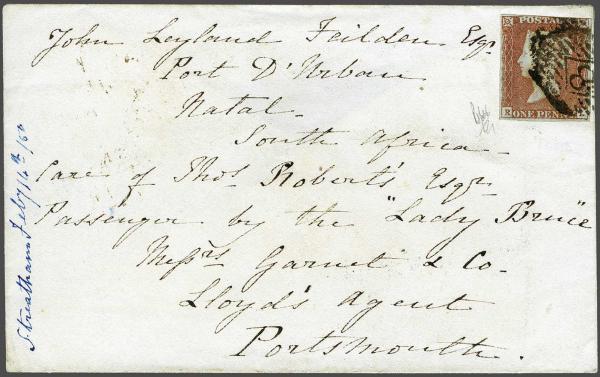 John Leyland Feilden Esqr
Port D'Urban
Natal
South Africa
Care of Thos Roberts Esqr
Passenger by the "Lady Bruce"
Messrs Garnet & Co
Lloyd's Agent
Portsmouth.
Streatham Feby 16th/50
POSTAGE
ONE PENNY